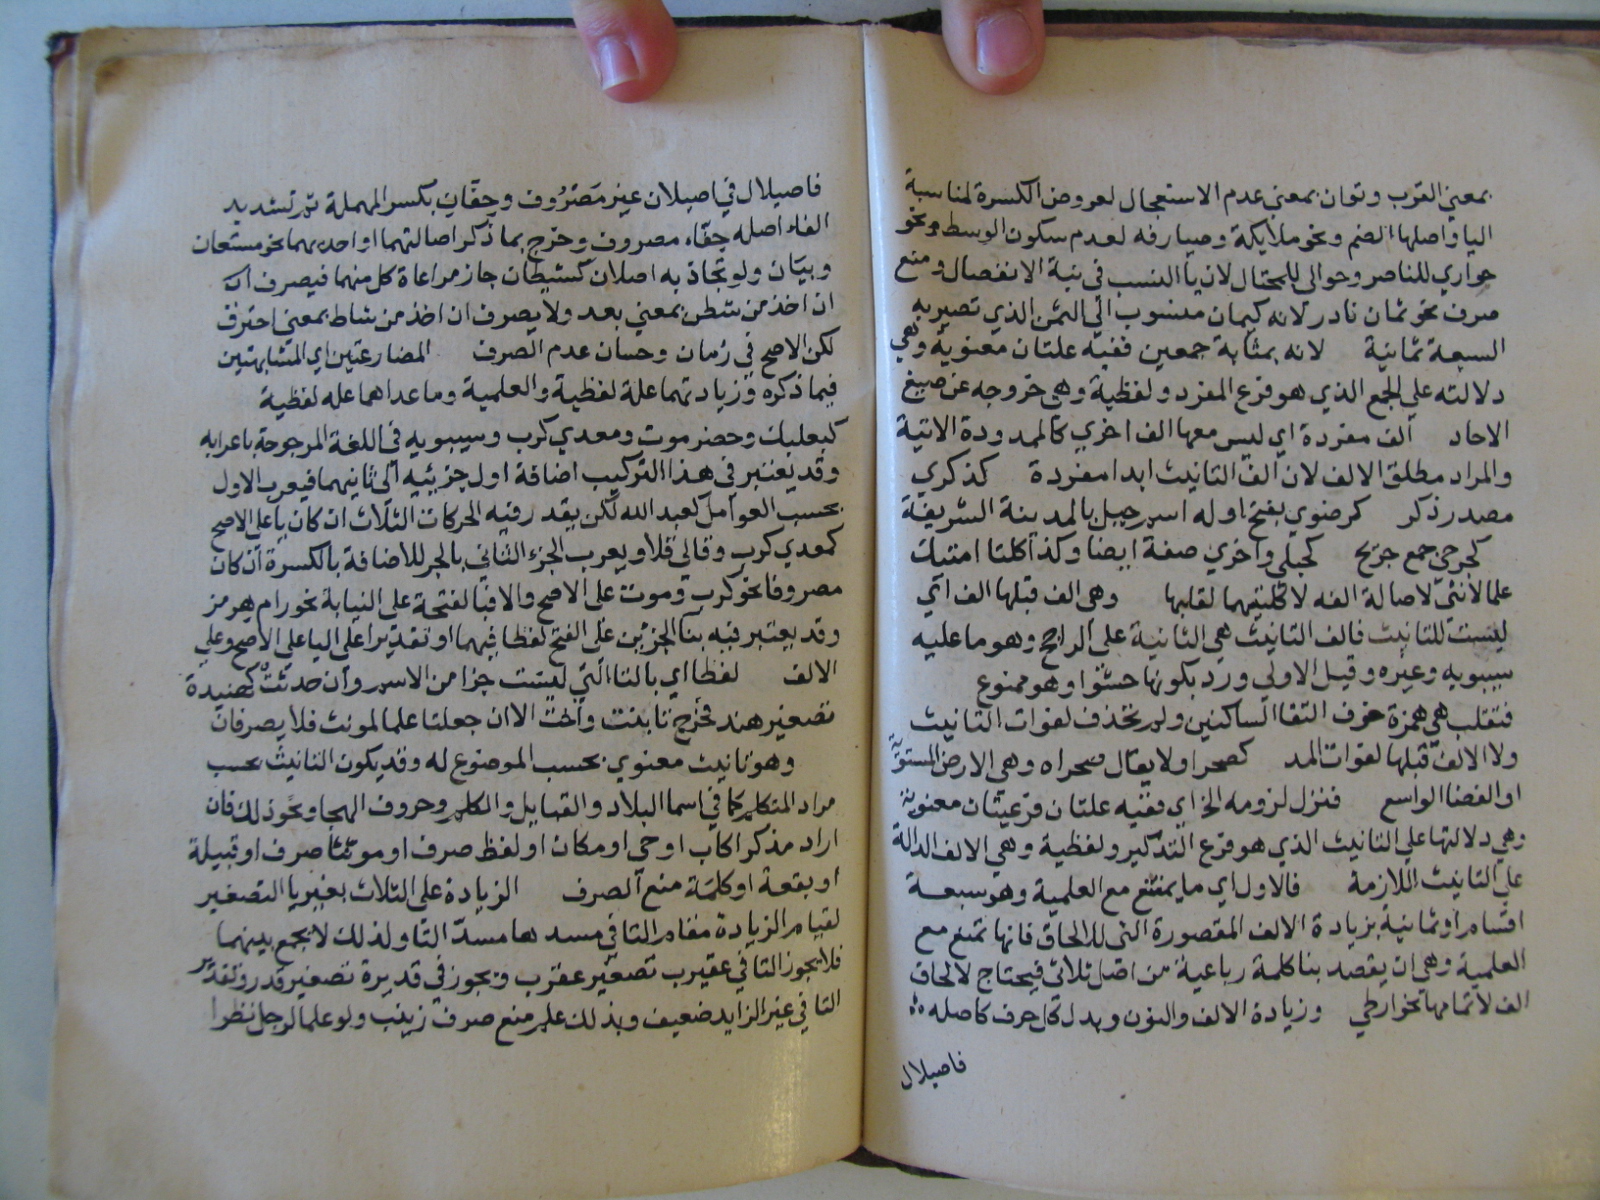 بمعني القرب وتوان بمعني عدم الاستعجال لعروض الكسرة لمناسبة
اليا واصلها الضم ونحو ملايكة وصيارفه لعدم سكون الوسط ونحو
حواري للناصر وحوالي للمحتال لان يا النسب في نية الانفصال ومنع
صرف نحو ثمان نادر لانه كيمان منسوب الي الثمن الذي تصير به
السبعة ثمانية لانه بمثابة جمعين ففيه علتان معنوية وهي
دلالته علي الجمع الذي هو فرع المفرد ولفظية وهي خروجه عن صيغ
الاحاد الف مفردة اي ليس معها الف اخري كالممدودة الاتية
والمراد مطلق الالف لان الف التانيث ابدا مفردة كذكري
مصدر ذكر كرضوي بفتح اوله اسم جبل بالمدينة الشريفة
كجرحي جمع جريح كحبلي واخري صفة ايضا وكذا كلتا امتبك
علما لانثي لاصالة الفه لا كليتهما لقلبها وهي الف قبلها الف اي
ليست للتانيث فالف التانيث هي الثانية علي الراجح وهو ما عليه
سيبويه وغيره وقيل الاولي ورد بكونها حشوا وهو ممنوع
فتقلب هي همزة خوف التقا الساكنين ولم تحذف لفوات التانيث
ولا الالف قبلها لفوات المد كصحرا ولا يقال صحراه وهي الارض المستوية
او الفضا الواسع فنزل لزومه الخ اي ففيه علتان فرعيتان معنوية
وهي دلالتها علي التانيث الذي هو فرع التذكير ولفظية وهي الالف الدالة
علي التانيث اللازمة فالاول اي ما يمتنع مع العلمية وهو سبعة
اقسام او ثمانية بزيادة الالف المقصورة التي للالحاق فانها تمنع مع
العلمية وهي ان يقصد بنا كلمة رباعية من اصل ثلاثي فيحتاج لالحاق
الف لاتمامها نحو ارطي وزيادة الالف والنون وبدل كل حرف كاصله
فاصيلال
فاصيلال في اصيلان غير مصروف وحفان بكسر المهملة ثم تشديد
الفاء اصله حفاء مصروف وخرج بما ذكر اصالتهما او احديهما نحو مستعان
وبيان ولو تجاذ به اصلان كشيطان جاز مراعاة كل منهما فيصرف
ان اخذ من شطن بمعني بعد ولا يصرف ان اخذ من شاط بمعني احترق
لكن الاصح في زمان وحسان عدم الصرف المضارعتين اي المشابهتين
فيما ذكره وزيادتهما علة لفظية والعلمية وما عداهما عله لفظية
كبعلبك وحضر موت ومعدي كرب وسيبويه في اللغة المرجوحة باعرابه
وقد يعتبر في هذا التركيب اضافة اول جزئيه الي ثانيهما فيعرب الاول
بحسب العوامل كعبد الله لكن يقدر فيه الحركات الثلاث ان كان يا علي الاصح
كمعدي كرب وقالي قلا ويعرب الجزء الثاني بالجر للاضافة بالكسرة ان كان
مصروفا نحو كرب وموت علي الاصح والا فبالفتحة علي النيابة نحو رام هرمز
وقد يعتبر فيه بنا الجزئين علي الفتح لفظا فيهما او تقديرا علي اليا علي الاصح وعلي
الالف لفظا اي بالتا التي ليست جزا من الاسم وان حدثت كهنيدة
تصغير هند فخرج تا بنت واخت الا ان جعلتا علما لمونث فلا يصرفان
وهو تانيث معنوي بحسب الموضوع له وقد يكون التانيث بحسب
مراد المتكلم كما في اسما البلاد والقبايل والكلم وحروف الهجا ونحو ذلك فان
اراد مذكرا كاب او حي او مكان او لفظ صرف او مونثا صرف او قبيلة
او بقعة او كلمة منع الصرف الزيادة علي الثلاث بغير يا التصغير
لقيام الزيادة مقام التا في مسدها مسد التا ولذلك لا يجمع بينهما
فلا يجوز التا في عقيرب تصغير عقرب ويجوز في قديرة تصغير قدر
التا في غير الزايد ضعيف وبذلك علم منع صرف زينب ولو علما لرجل نظرا